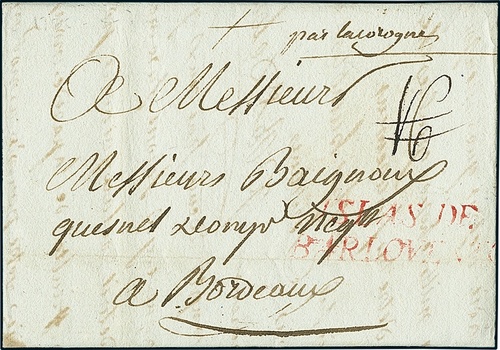 par lacorogne
A Messieurs
16
Messieurs Baignoux
quesnel & comp^e neg^ts
ISLAS DE
BARLOVENTO
a Bordeaux